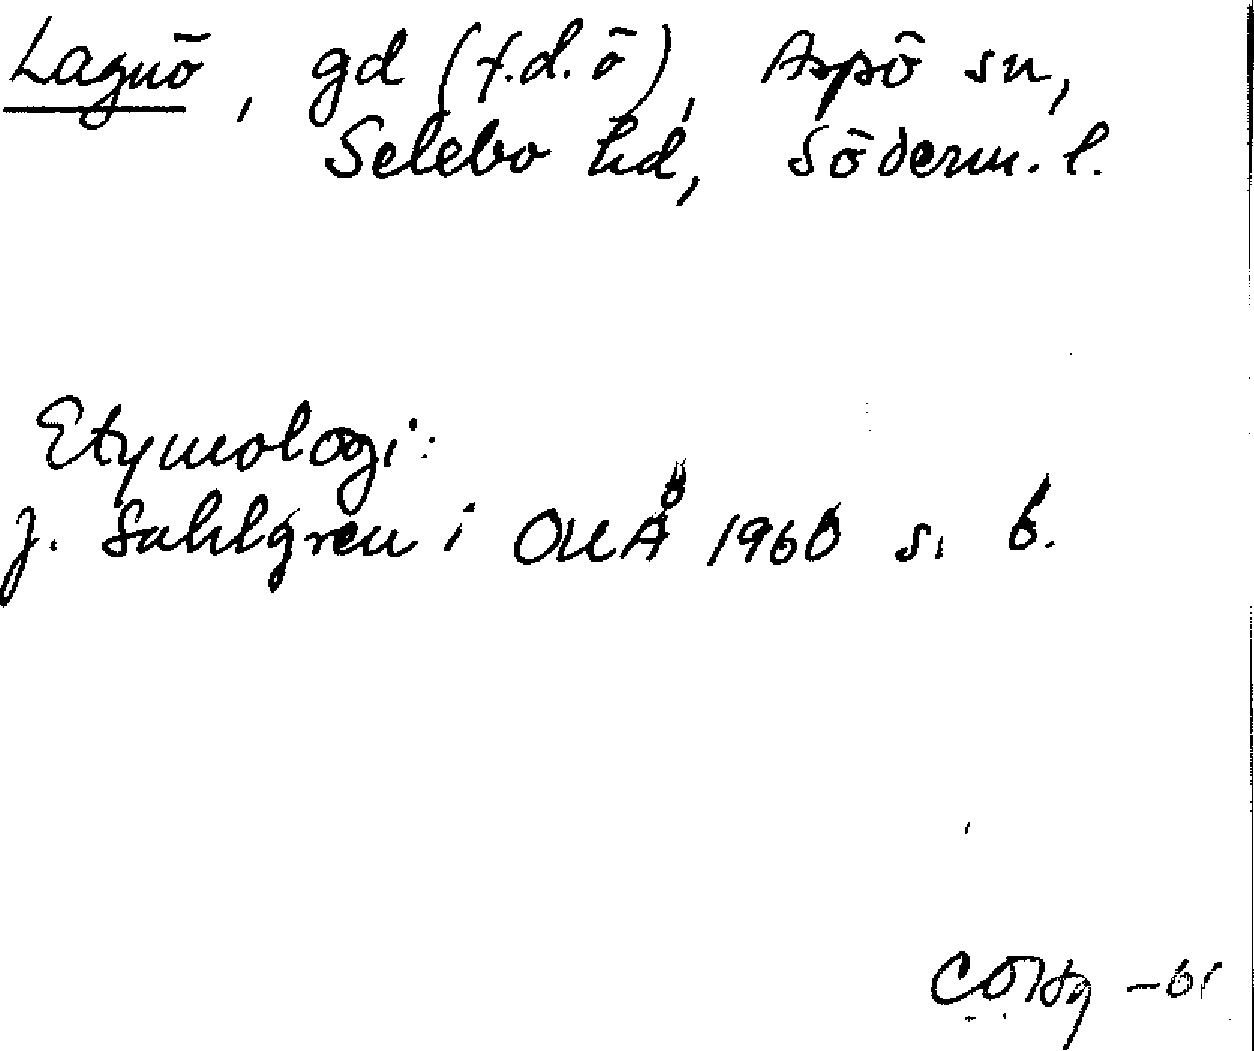 Lagnö, gd (f.d. ö), Aspö sn,
Selebo hd, Söderm. l.
Etymologi:
J. Sahlgren i OUÅ 1960 s. 6.